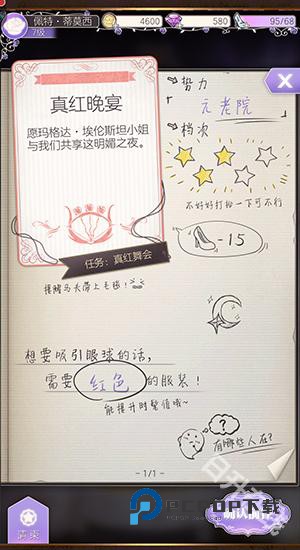 佩特·蒂莫西
7级
4600
580
95/68
真红晚宴
愿玛格达·埃伦斯坦小姐
与我们共享这明媚之夜。
任务:真红舞会
势力
元老院
档次
不好好打扮一下可不行
-15
想要吸引眼球的话,
需要 红色 的服装!
能提升时髦值哦~
?
有哪些人在?
1/1
请柬